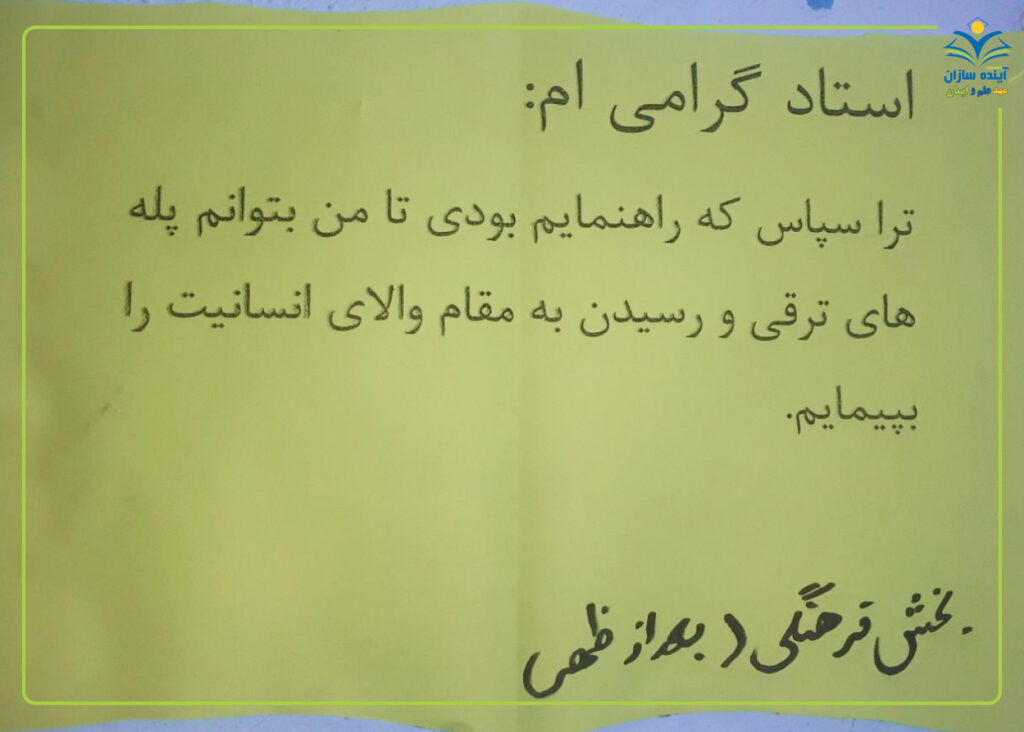 آینده سازان
مهد علم و ایمان
استاد گرامی ام:
ترا سپاس که راهنمایم بودی تا من بتوانم پله
های ترقی و رسیدن به مقام والای انسانیت را
بپیمایم.
بخش فرهنگی (بعد از ظهر)